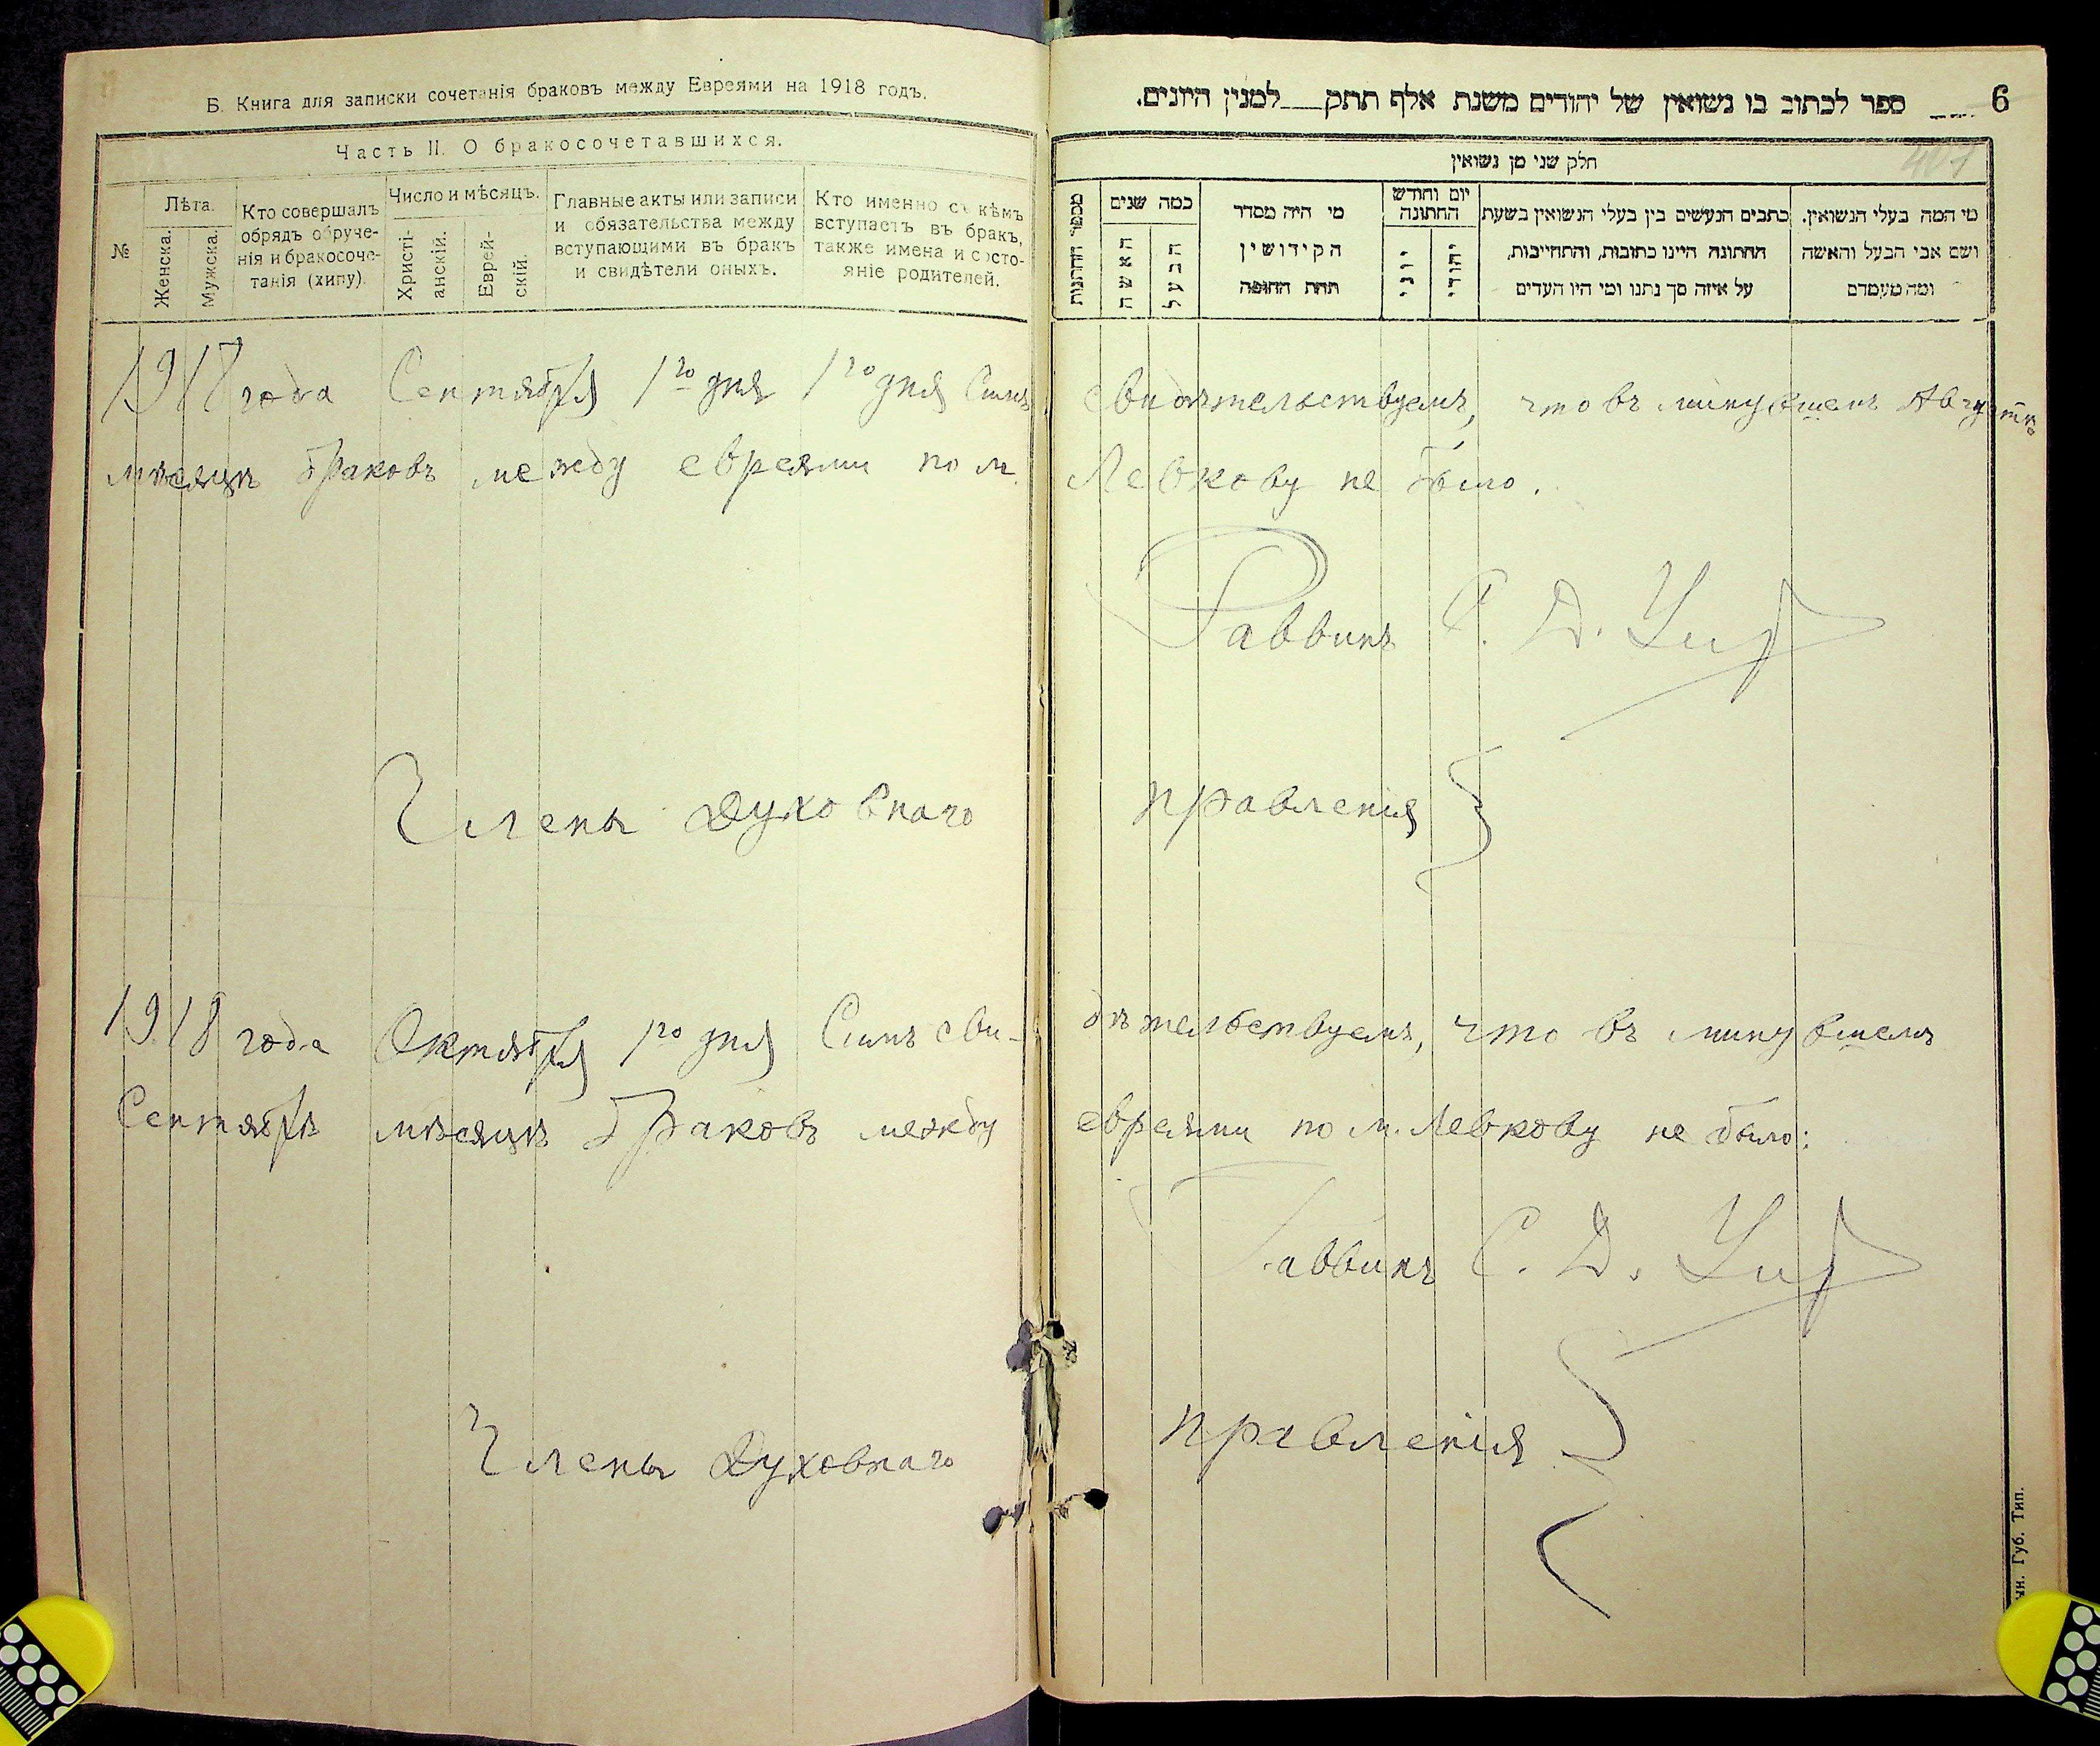 Б. Книга для записки сочетанія браковъ между Евреями на 1918 годъ.
Часть II. О бракосочетавшихся.
№
Лѣта.
Женска.
Мужска.
Кто совершалъ
обрядъ обруче-
нія и бракосоче-
танія (хипу).
Число и мѣсяцъ.
Христі-
анскій.
Еврей-
скій.
Главные акты или записи
и обязательства между
вступающими въ бракъ
и свидѣтели оныхъ.
Кто именно съ кѣмъ
вступаетъ въ бракъ,
также имена и состо-
яніе родителей.
6
ספר לכתוב בו נשואין של יהודים משנת אלף תתק___למנין היונים.
חלק שני מן נשואין
מספר החתונות
כמה שנים
האשה
הבעל
מי היה מסדר
הקידושין
תחת החופה
יום וחודש
החתונה
יוני
יהודי
כתבים הנעשים בין בעלי הנשואין בשעת
החתונה היינו כתובות, והתחייבות,
על איזה סך נתנו ומי היו העדים
מי המה בעלי הנשואין.
ושם אבי הבעל והאשה
ומה מעמדם
1918 года Сентября 1го дня 1го дня Симъ свидѣтельствуемъ, что въ минувшемъ Августѣ
мѣсяцѣ браковъ между евреями по м. Левкову не было.
Раввинъ С. Д.
Члены Духовнаго правленія
1918 года Октября 1го дня Симъ сви-дѣтельствуемъ, что въ минувшемъ
Сентябрѣ мѣсяцѣ браковъ между евреями по м. Левкову не было:
Раввинъ С. Д.
Члены Духовнаго правленія
Губ. Тип.